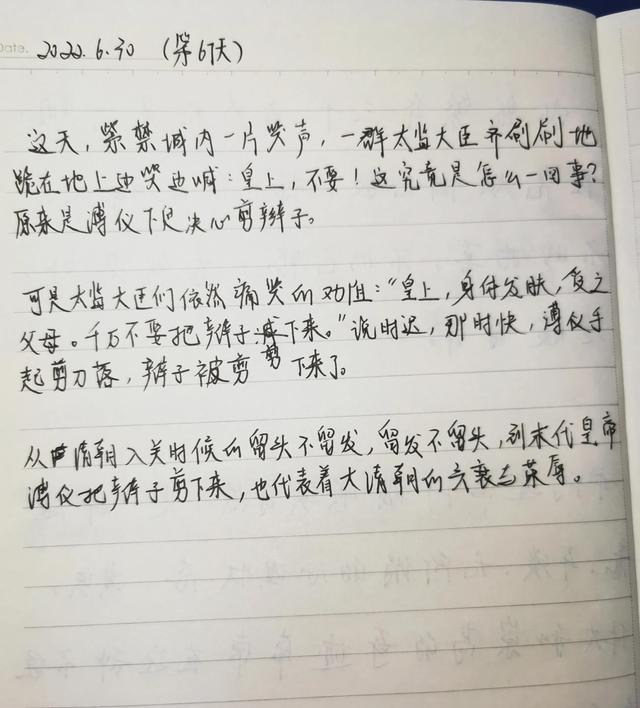 Date. 2022.6.30 (第67天)
这天，紫禁城内一片哭声，一群太监大臣齐刷刷地
跪在地上边哭边喊：皇上，不要！这究竟是怎么一回事？
原来是溥仪下定决心剪辫子。
可是太监大臣们依然痛哭的劝阻："皇上，身体发肤，受之
父母。千万不要把辫子剪下来。"说时迟，那时快，溥仪手
起剪刀落，辫子被剪下来了。
从清朝入关时候的留头不留发，留发不留头，到末代皇帝
溥仪把辫子剪下来，也代表着大清朝的兴衰与荣辱。